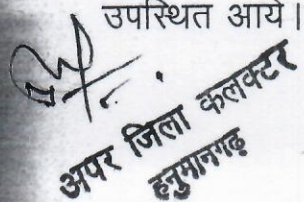 उपस्थित आये।
अपर जिला कलक्टर
हनुमानगढ़